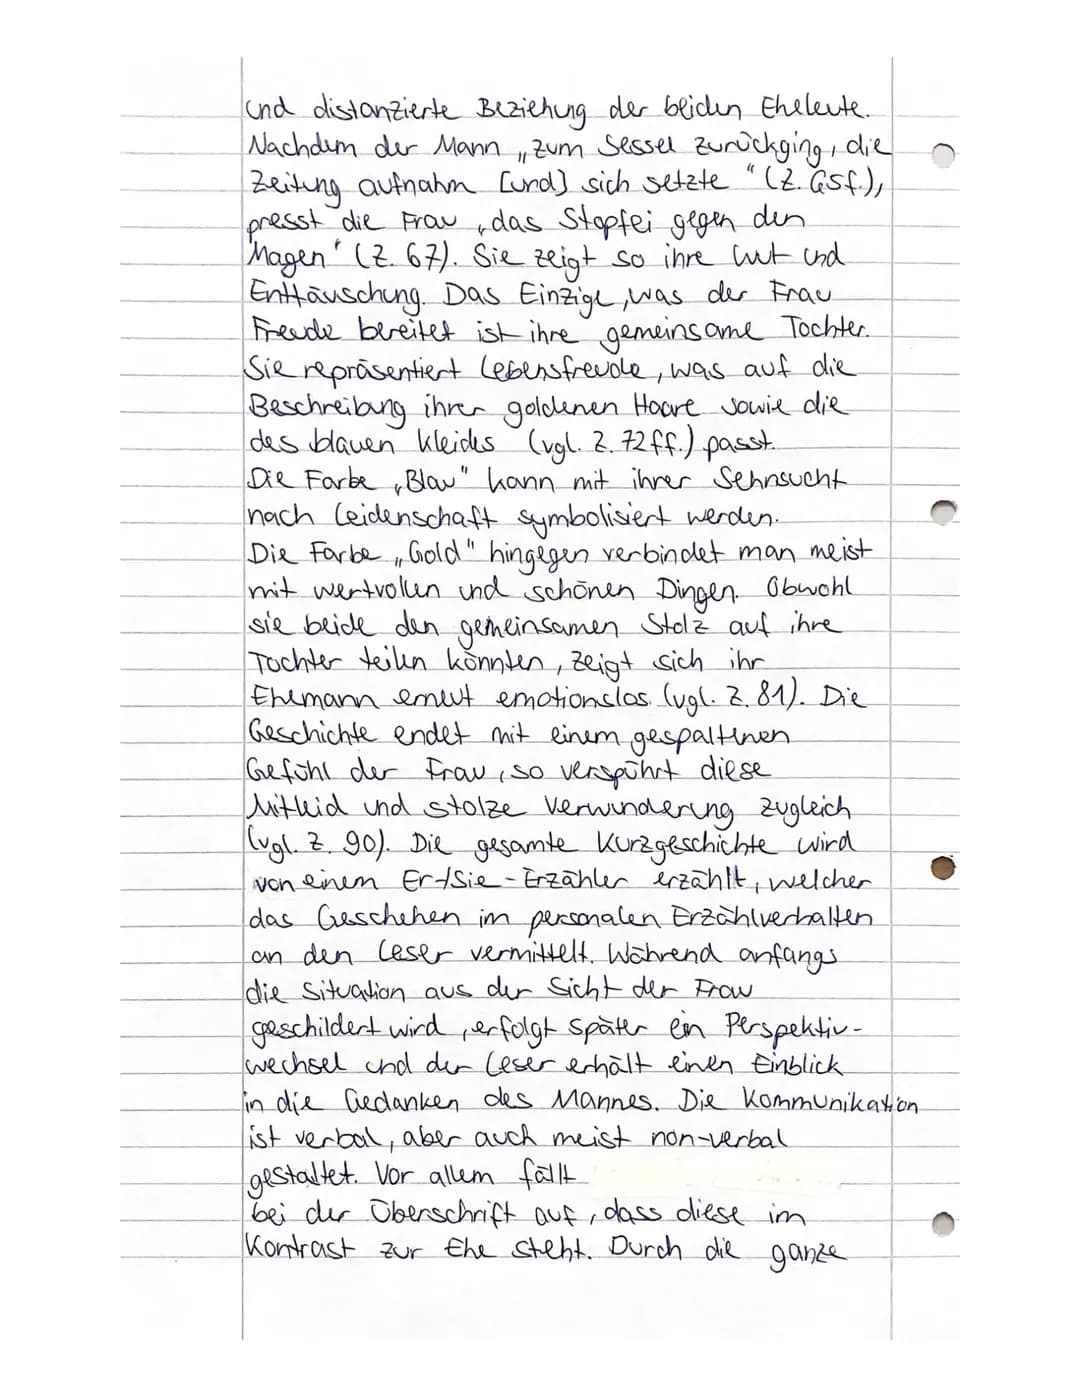 und distanzierte Beziehung der beiden Eheleute.
Nachdem der Mann „zum Sessel zurückging, die
Zeitung aufnahm [und] sich setzte" (Z. 65f.),
presst die Frau „das Stopfei gegen den
Magen" (Z. 67). Sie zeigt so ihre Wut und
Enttäuschung. Das Einzige, was der Frau
Freude bereitet ist ihre gemeinsame Tochter.
Sie repräsentiert Lebensfreude, was auf die
Beschreibung ihrer goldenen Haare sowie die
des blauen Kleides (vgl. Z. 72ff.) passt.
Die Farbe „Blau" kann mit ihrer Sehnsucht
nach Leidenschaft symbolisiert werden.
Die Farbe „Gold" hingegen verbindet man meist
mit wertvollen und schönen Dingen. Obwohl
sie beide den gemeinsamen Stolz auf ihre
Tochter teilen könnten, zeigt sich ihr
Ehemann erneut emotionslos (vgl. Z. 81). Die
Geschichte endet mit einem gespaltenen
Gefühl der Frau, so verspührt diese
Mitleid und stolze Verwunderung zugleich
(vgl. Z. 90). Die gesamte Kurzgeschichte wird
von einem Er-/Sie-Erzähler erzählt, welcher
das Geschehen im personalen Erzählverhalten
an den Leser vermittelt. Während anfangs
die Situation aus der Sicht der Frau
geschildert wird, erfolgt später ein Perspektiv-
wechsel und der Leser erhält einen Einblick
in die Gedanken des Mannes. Die Kommunikation
ist verbal, aber auch meist non-verbal
gestaltet. Vor allem fällt
bei der Überschrift auf, dass diese im
Kontrast zur Ehe steht. Durch die ganze